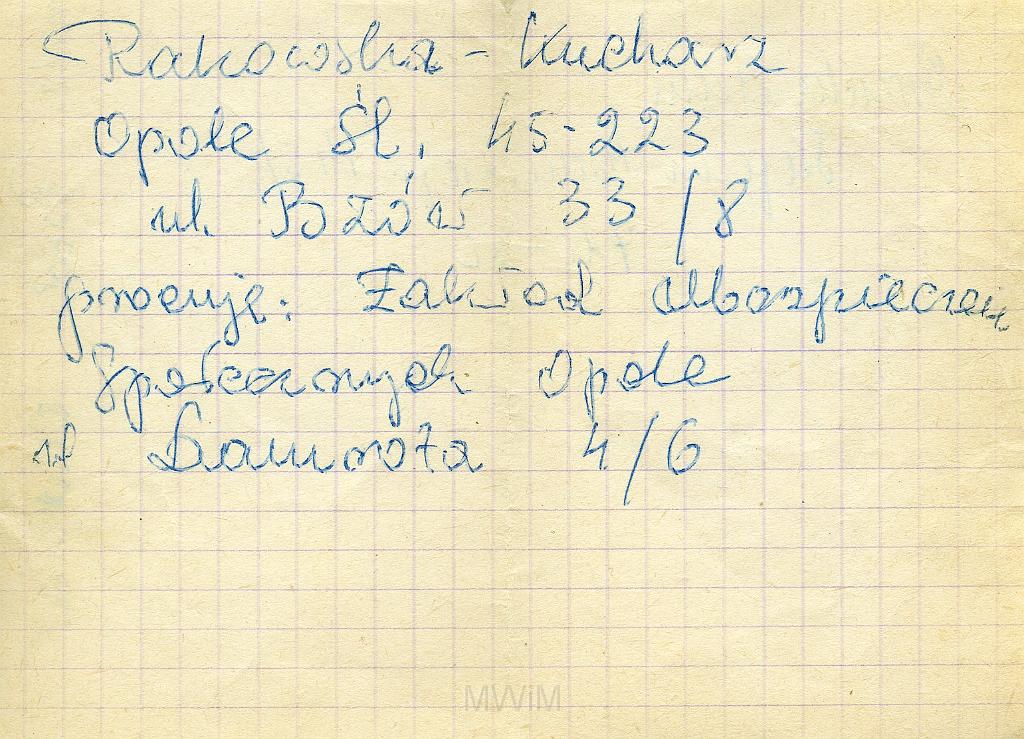 Rakowska - Kucharz
Opole Śl. 45-223
ul. Bzów 33/8
pracuję: Zakład Ubezpieczeń
Społecznych Opole
ul Damrota 4/6
MWiM